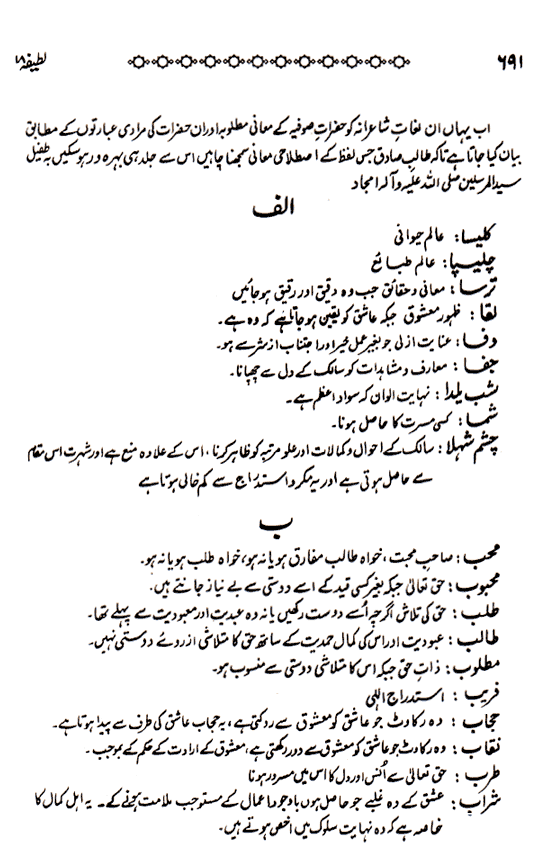 ٦٩١ لطیفہ ۱۸
اب یہاں ان لغات شاعرانہ کو حضرات صوفیہ کے معانی مطلوبہ اور ان حضرات کی مرادی عبارتوں کے مطابق
بیان کیا جاتا ہے تاکہ طالب صادق جس لفظ کے اصطلاحی معانی سمجھنا چاہیں اس سے جلد ہی بہرہ ور ہو سکیں بہ طفیل
سید المرسلین صلی اللہ علیہ وآلہ امجاد
الف
کلیسا: عالم حیوانی
چلیپا: عالم طبائع
ترسا: معانی و حقائق جب وہ دقیق اور رقیق ہو جائیں
لقا: ظہور معشوق جبکہ عاشق کو یقین ہو جاتا ہے کہ وہ ہے۔
وفا: عنایت ازلی جو بغیر عمل خیر اور اجتناب از شر ہے ہو۔
جفا: معارف و مشاہدات کو سالک کے دل سے چھپانا۔
شب یلدا: نہایت الوان کہ سواد اعظم ہے۔
شما: کسی مسرت کا حاصل ہونا۔
چشم شہلا: سالک کے احوال و کمالات اور علو مرتبہ کو ظاہر کرنا، اس کے علاوہ منع ہے اور شہرت اس مقام
سے حاصل ہوتی ہے اور یہ مکر و استدراج سے کم خالی ہوتا ہے
ب
محب: صاحب محبت، خواہ طالب مفارق ہو یا نہ ہو، خواہ طلب ہو یا نہ ہو۔
محبوب: حق تعالیٰ جبکہ بغیر کسی قید کے اسے دوستی سے بے نیاز جانتے ہیں۔
طلب: حق کی تلاش اگرچہ اُسے دوست رکھیں یا نہ وہ عبدیت اور معبودیت سے پہلے تھا۔
طالب: عبودیت اور اس کی کمال حمدیت کے ساتھ حق کا متلاشی از روئے دوستی نہیں۔
مطلوب: ذات حق جبکہ اس کا متلاشی دوستی سے منسوب ہو۔
فریب: استدراج الٰہی
حجاب: وہ رکاوٹ جو عاشق کو معشوق سے روکتی ہے، یہ حجاب عاشق کی طرف سے پیدا ہوتا ہے۔
نقاب: وہ رکاوٹ جو عاشق کو معشوق سے دور رکھتی ہے، معشوق کے ارادت کے حکم کے بموجب۔
طرب: حق تعالیٰ سے اُنس اور دل کا اس میں مسرور ہونا
شراب: عشق کے وہ غلبے جو حاصل ہوں باوجود اعمال کے مستوجب ملامت بننے کے۔ یہ اہل کمال کا
خاصہ ہے کہ وہ نہایت سلوک میں اخص ہوتے ہیں۔